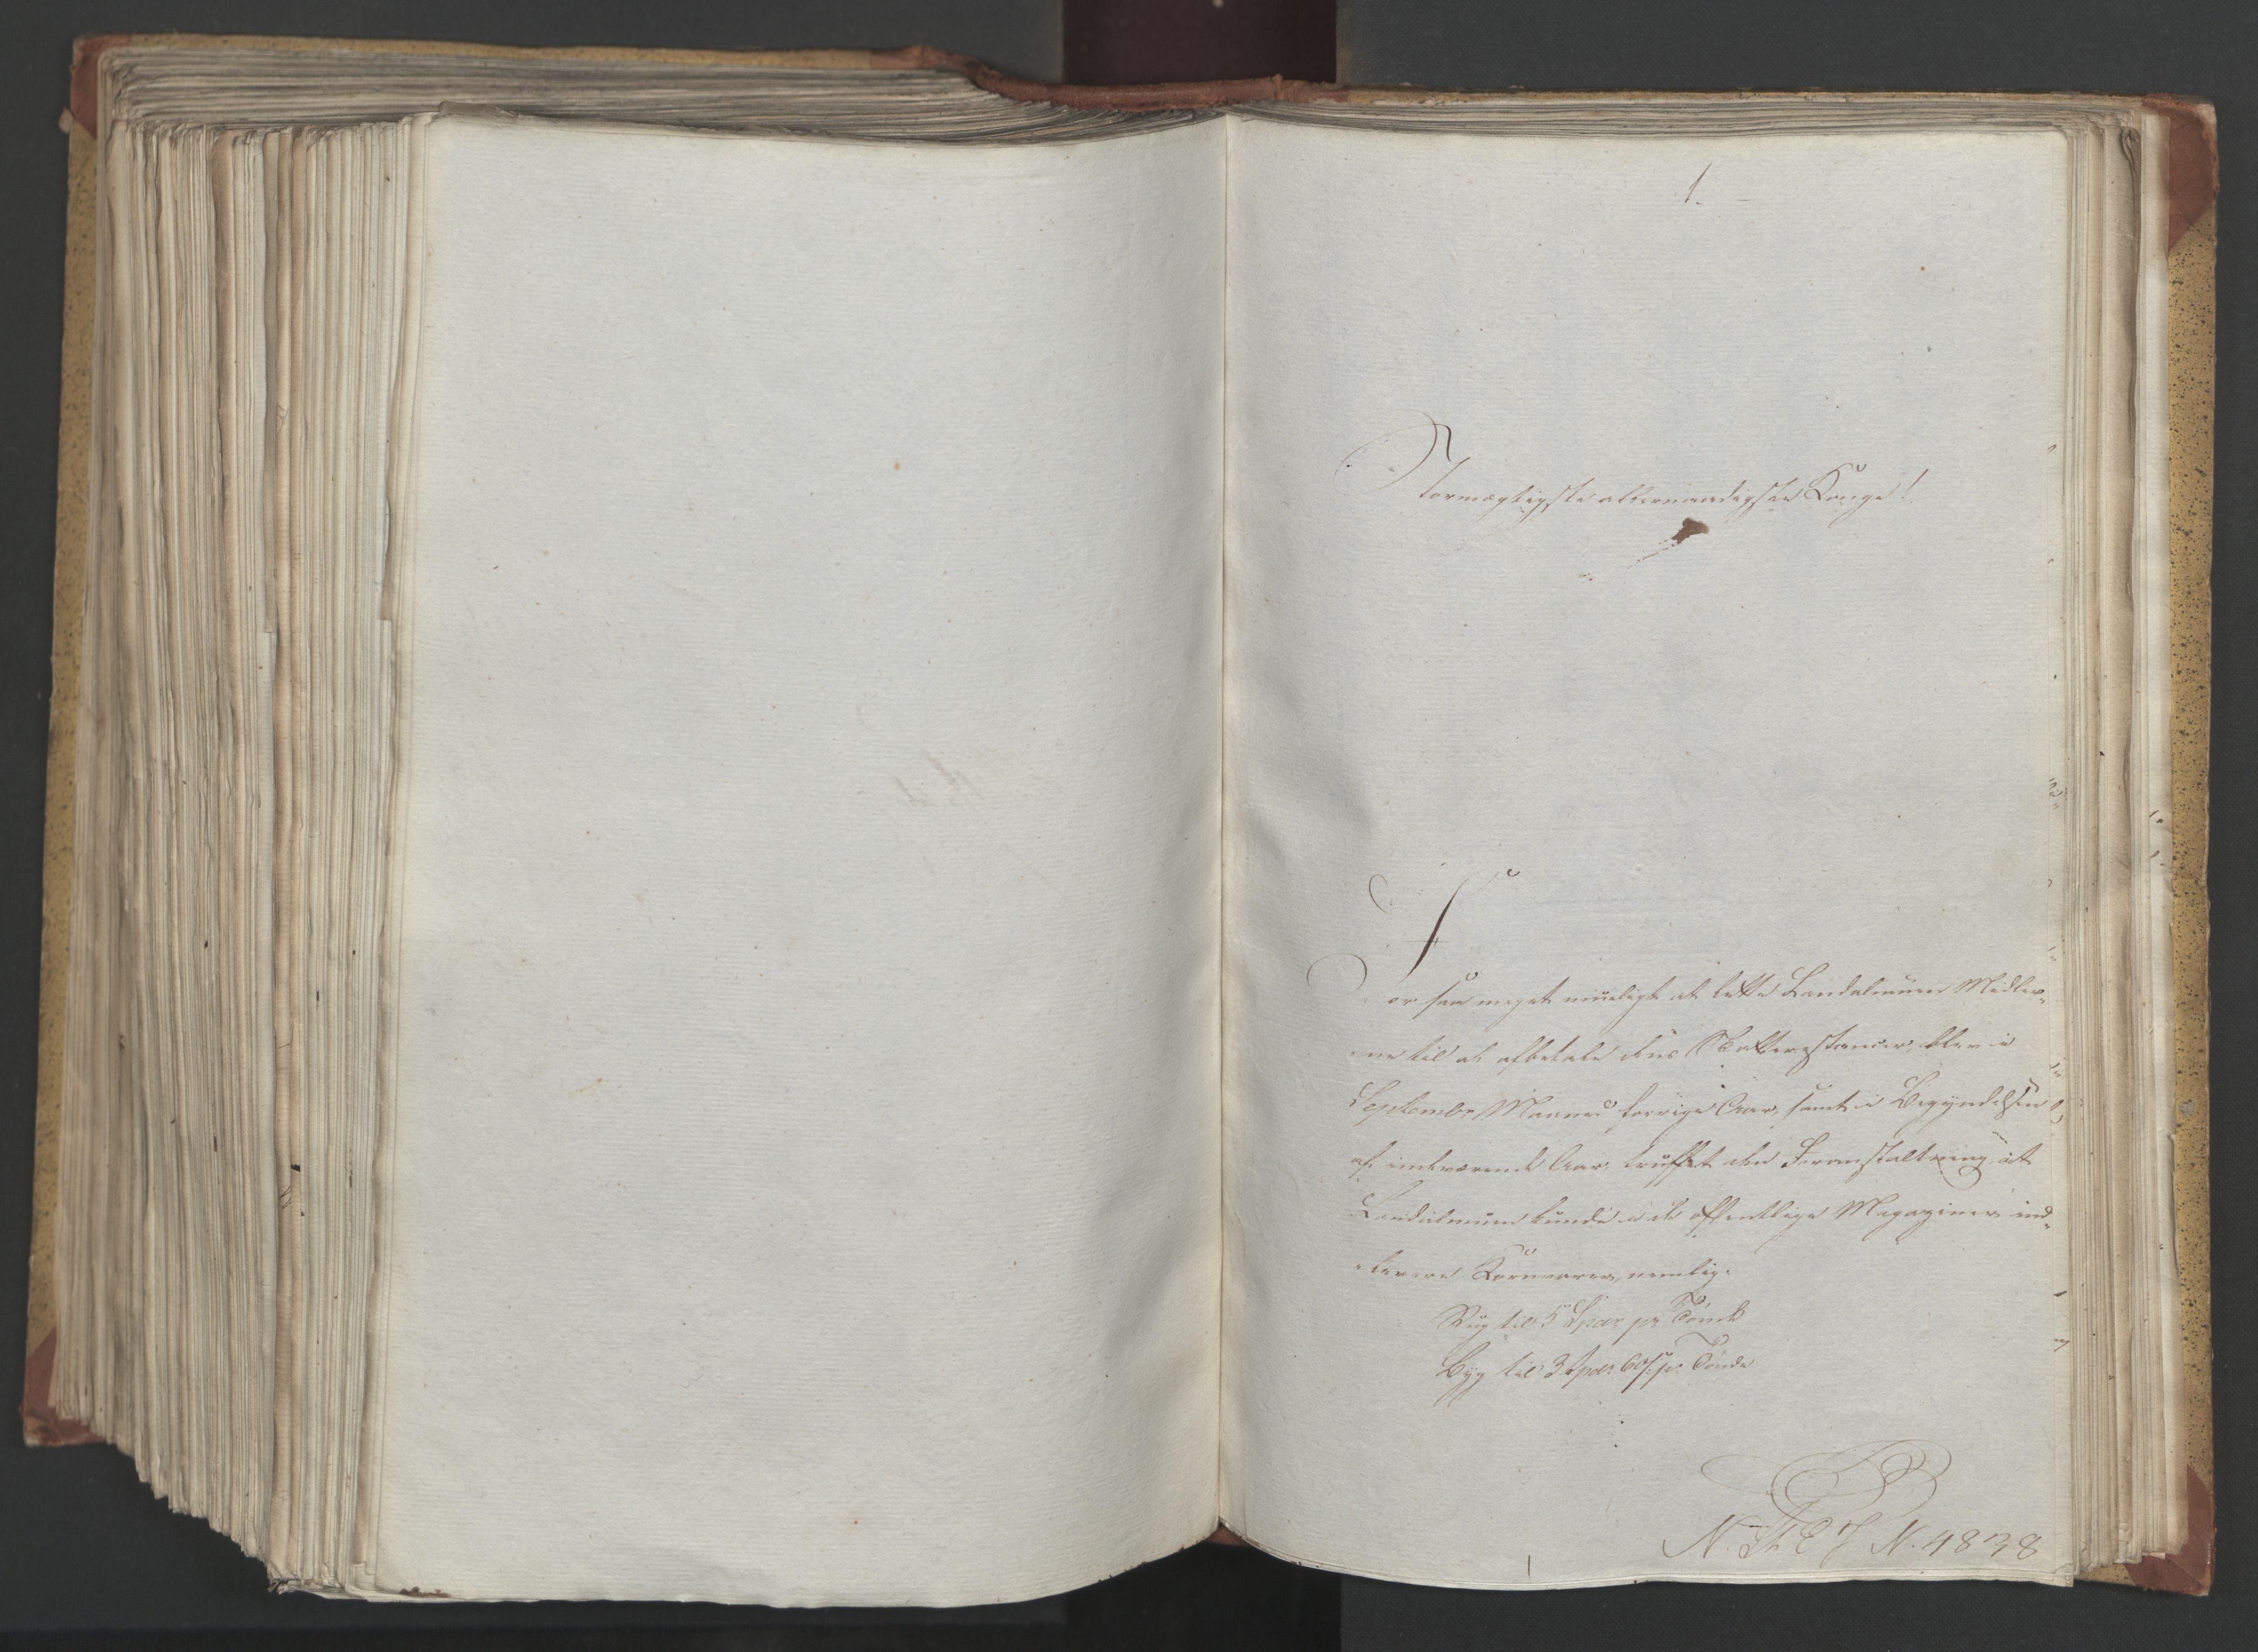 1.
Stormægtigste allernaadigste Konge!
For saa meget mueligt at lette Landalmuen Midler=
ne til at afbetale dens Skatterestancer, blev i
Septembr Maaned forrige Aar, samt i Begyndelsen
af indeværende Aar, truffet den Foranstaltning at
Landalmuen kunde i de offentlige Magaziner ind=
levere Kornvarer, nemlig:
Rug til 5 Spcr pr Tønde
Byg til 3 Spcr 60 s. pr Tønde
N. 4838